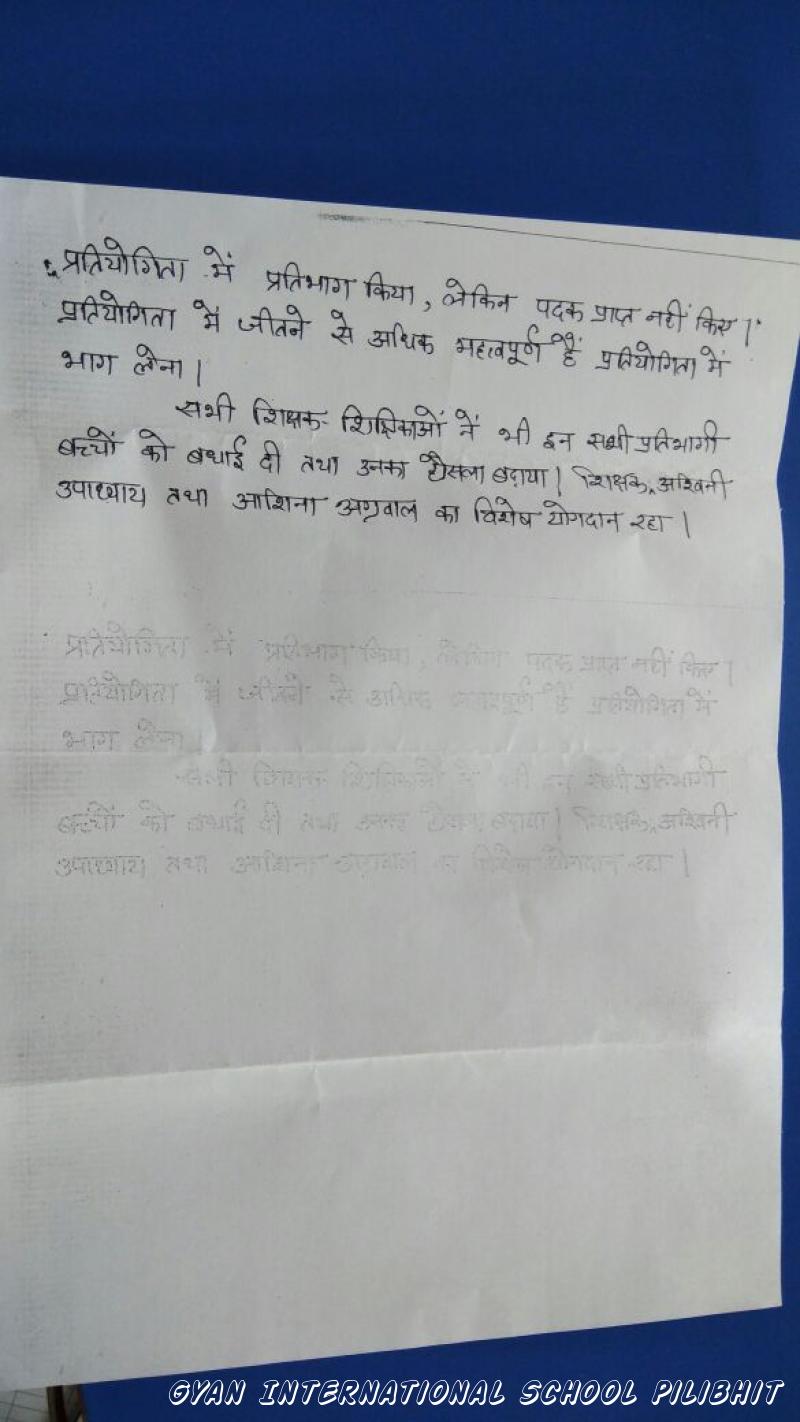 प्रतियोगिता में प्रतिभाग किया, लेकिन पदक प्राप्त नहीं किए।
प्रतियोगिता में जीतने से अधिक महत्वपूर्ण हैं प्रतियोगिता में
भाग लेना।
सभी शिक्षक-शिक्षिकाओं नें भी इन सभी प्रतिभागी
बच्चों को बधाई दी तथा उनका हौसला बढ़ाया। शिक्षक, अश्विनी
उपाध्याय तथा आशिना अग्रवाल का विशेष योगदान रहा।
प्रतियोगिता में प्रतिभाग किया, लेकिन पदक प्राप्त नहीं किए।
प्रतियोगिता में जीतने से अधिक महत्वपूर्ण हैं प्रतियोगिता में
भाग लेना
सभी शिक्षक शिक्षिकाओं नें भी इन सभी प्रतिभागी
बच्चों को बधाई दी तथा उनका हौसला बढ़ाया। शिक्षक, अश्विनी
उपाध्याय तथा आशिना अग्रवाल का विशेष योगदान रहा।
GYAN INTERNATIONAL SCHOOL PILIBHIT